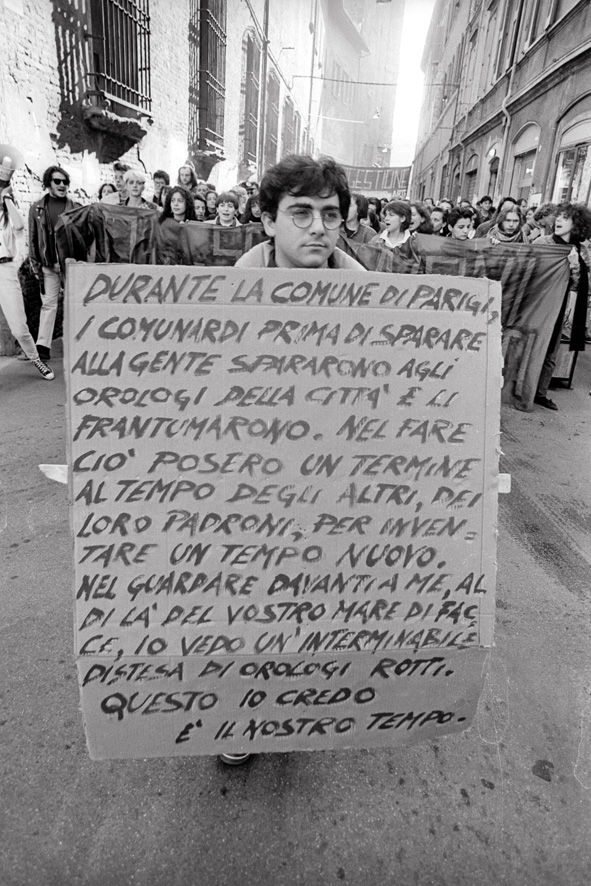 ESTIONE
DURANTE LA COMUNE DI PARIGI,
I COMUNARDI PRIMA DI SPARARE
ALLA GENTE SPARARONO AGLI
OROLOGI DELLA CITTA' E LI
FRANTUMARONO. NEL FARE
CIO' POSERO UN TERMINE
AL TEMPO DEGLI ALTRI, DEI
LORO PADRONI, PER INVEN=
TARE UN TEMPO NUOVO.
NEL GUARDARE DAVANTI A ME, AL
DI LA' DEL VOSTRO MARE DI FAC
CE, IO VEDO UN'INTERMINABILE
DISTESA DI OROLOGI ROTTI.
QUESTO IO CREDO
E' IL NOSTRO TEMPO.